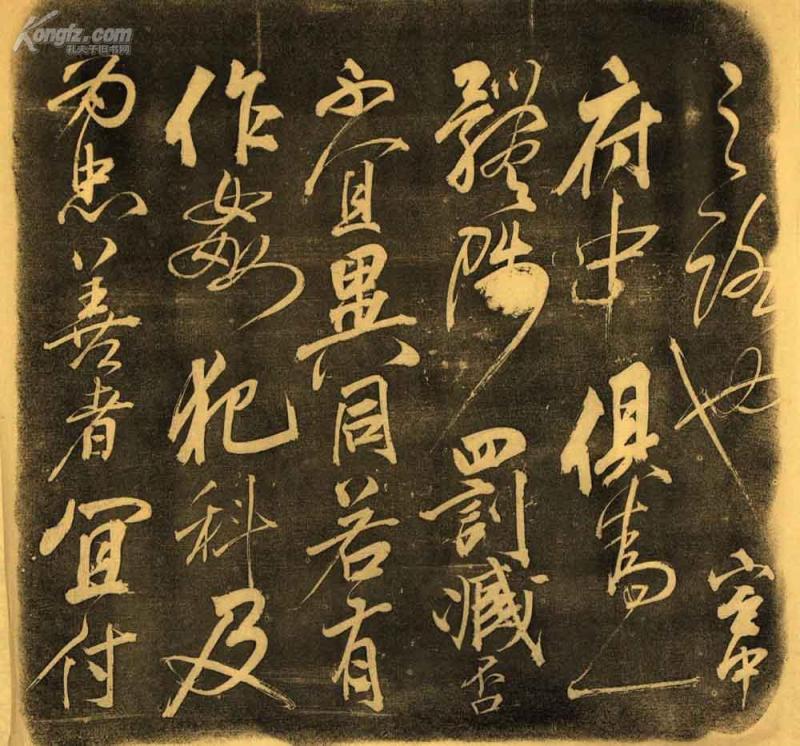 Kongfz.com
孔夫子旧书网
之路也宮中
府中俱為一
體陟罰臧否
不宜異同若有
作姦犯科及
為忠善者宜付